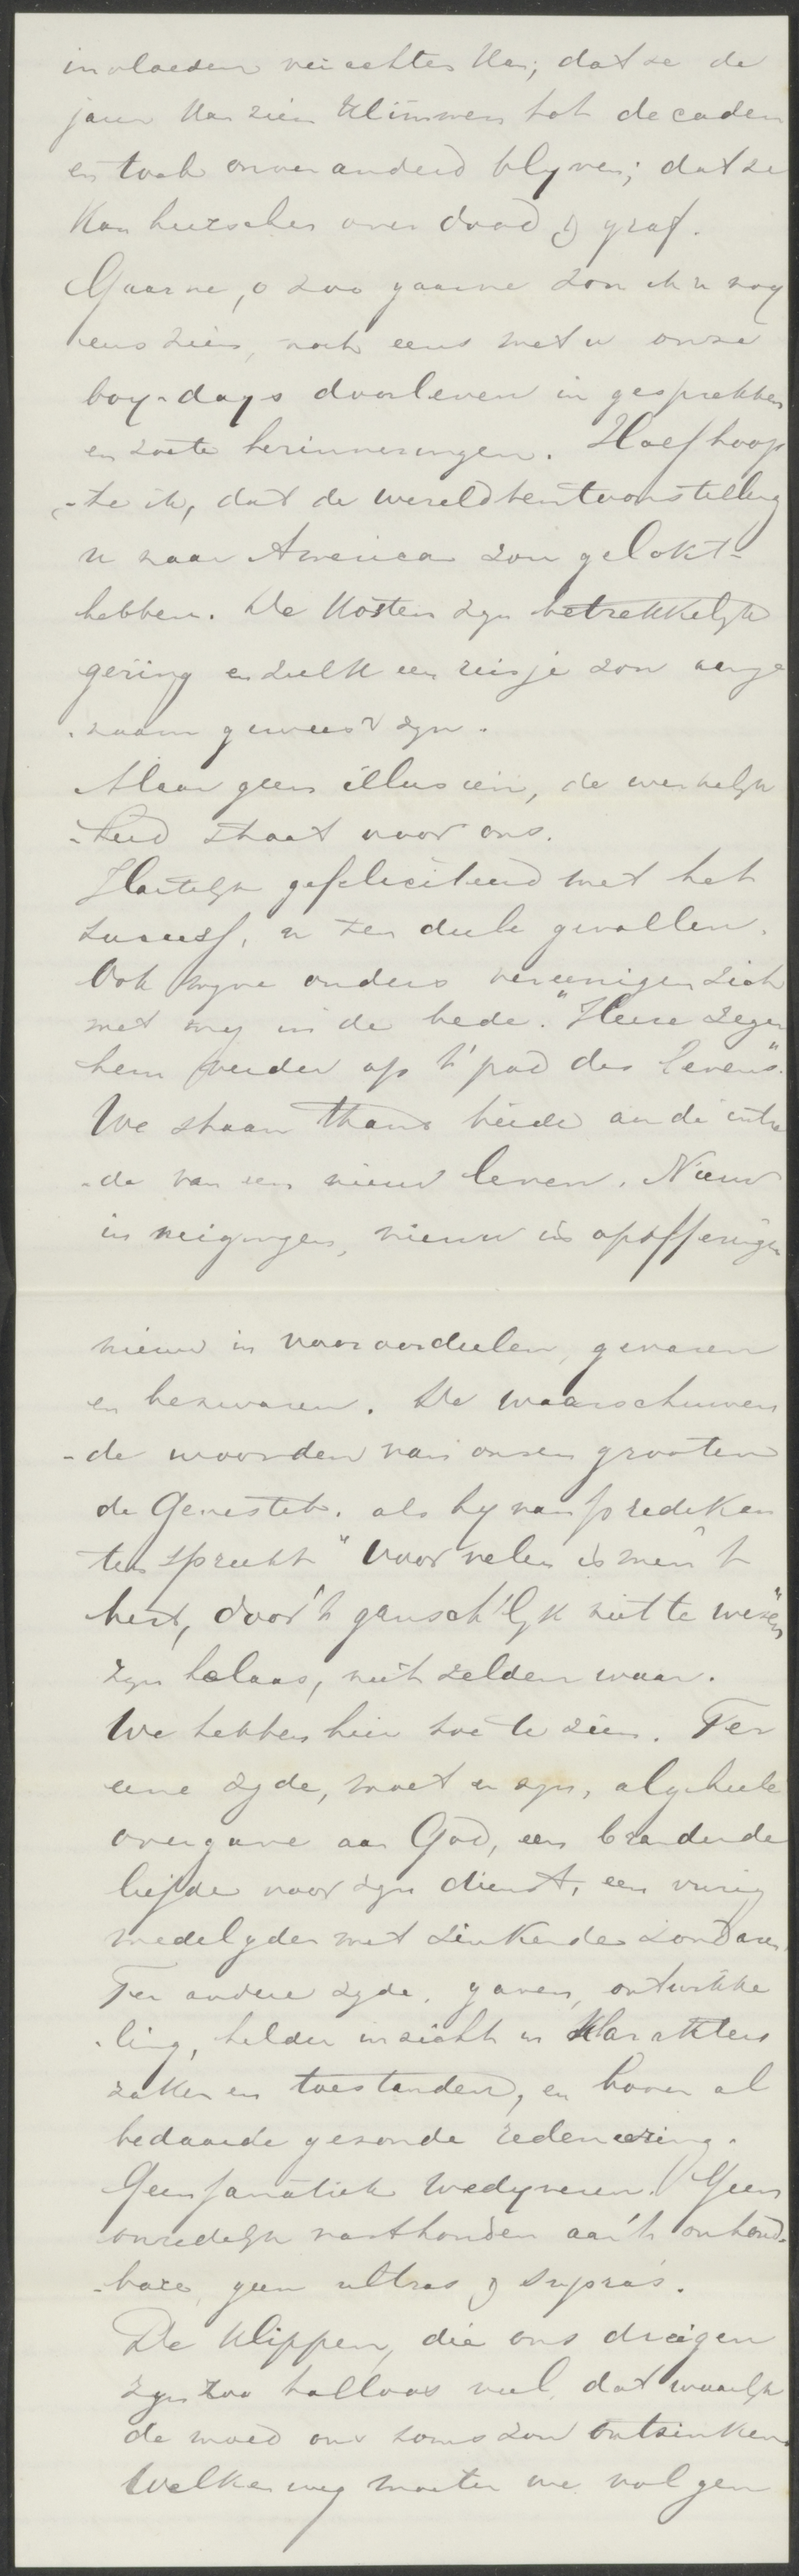 invloeden verachten kan; dat ze de
jaren kan zien klimmen tot decaden
en toch onveranderd blyven; dat ze
kan heerschen over dood & graf.
Gaarne, o zoo gaarne zou ik u nog
eens zien, noch eens met u onze
boy-days doorleven in gesprekken
en zoete herinneringen. Half hoop
-te ik, dat de wereldtentoonstelling
u naar America zou gelokt-
hebben. De kosten zyn betrekkelyk
gering en zulk een reisje zou aenge
-naam geweest zyn.
Maar geen illusien, de werkelyk
-heid staat voor ons.
Hartelyk gefeliciteerd met het
succes, u ten deele gevallen.
Ook myne ouders vereenigen zich
met my in de bede. "Heere zegen
hem verder op 't pad des levens".
We staan thans beide aan de intre
-de van een nieuw leven. Nieuw
in neigingen, nieuw in opofferingen
nieuw in vooroordeelen, gevaren
en bezwaren. De waarschuwen
-de woorden van onzen grooten
de Genestet. als hy van predikan
ten spreekt "Voor velen is men 't
best, door 't gansch'lyk niet te wezen"
zyn helaas, niet zelden waar.
We hebben hier toe te zien. Ter
eene zyde, moet er zyn, algeheele
overgave aan God, een brandende
liefde voor zyn dienst, een vurig
medelyden met zinkende zondaren.
Ter andere zyde, gaven, ontwikke
-ling, helder inzicht in karakters
zaken en toestanden, en boven al
bedaarde gezonde redeneering.
Geen fanatiek wedyveren. Geen
onredelyk vasthouden aan 't onhoud-
-bare, geen ultras & supra's.
De klippen, die ons dreigen
zyn zoo talloos veel, dat waarlyk
de moed ons soms zou ontzinken.
Welken weg moeten we volgen